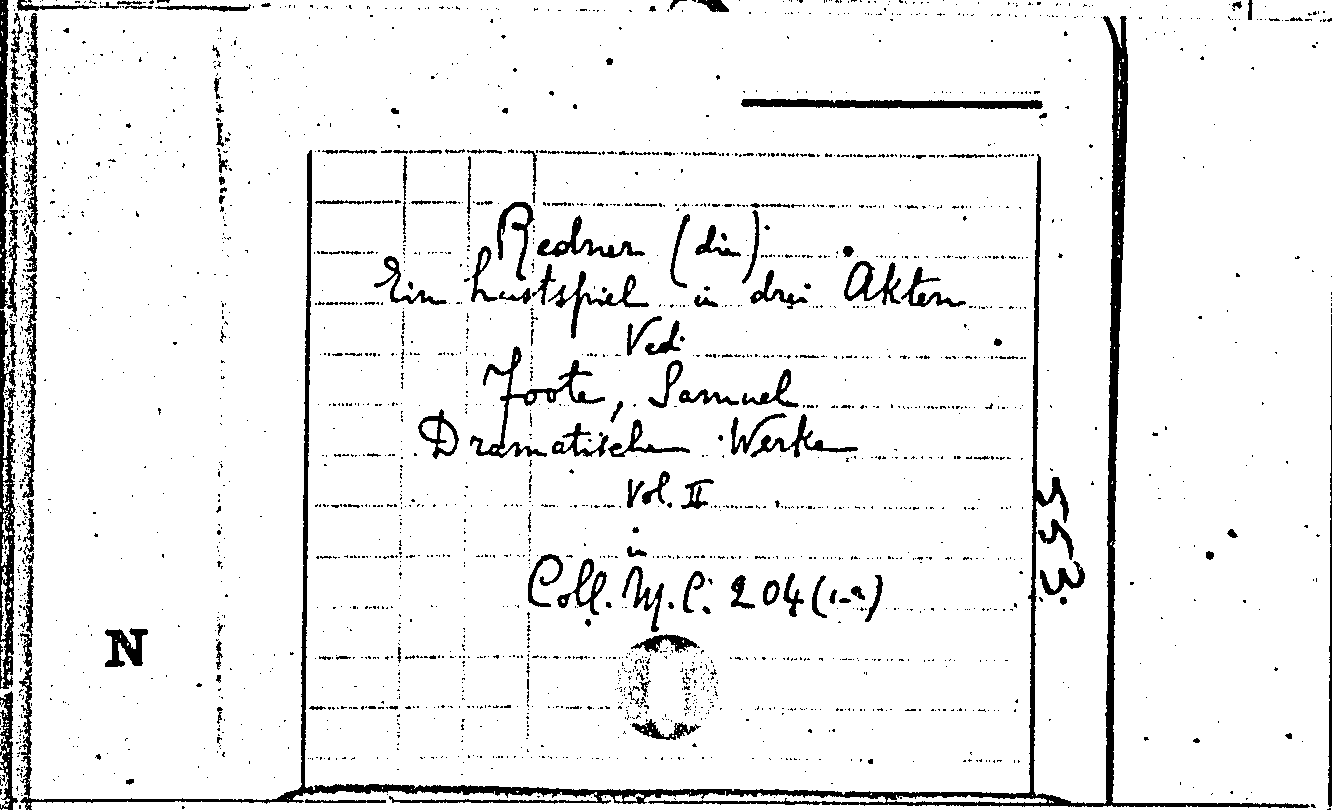 Redner (die)
Ein Lustspiel in drei Akten
Vedi
Foote, Samuel
Dramatische Werke
Vol. II
in
Coll. M. C. 204 (1-2)
553.
N